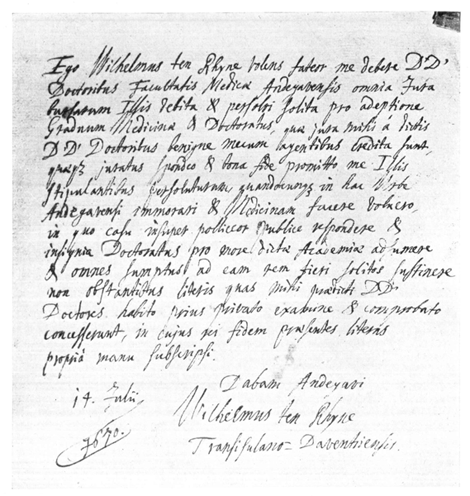 Ego Wilhelmus ten Rhyne volens fateor me debere D.D.
Doctoribus Facultatis Medicæ Andegavensis omnia Jura
Illis debita & persolvi solita pro adeptione
Graduum Medicinæ & Doctoratus, quæ jura mihi à dictis
D.D. Doctoribus benigne mecum agentibus credita sunt,
quæq; juratus spondeo & bona fide promitto me Illis
stipulantibus persoluturum quandocunq; in hac Urbe
Andegavensi immorari & Medicinam facere voluero,
in quo casu insuper polliceor publice respondere &
insignia Doctoratus pro more dictæ Academiæ adsumere
& omnes sumptus ad eam rem fieri solitos sustinere
non obstantibus literis quas mihi prædicti D.D.
Doctores habito prius privato examine & comprobato
concesserunt, in cujus rei fidem præsentes literis
propriâ manu subscripsi.
Dabam Andegavi
14. Julii
1670.
Wilhelmus ten Rhyne
Transisulano-Daventriensis.